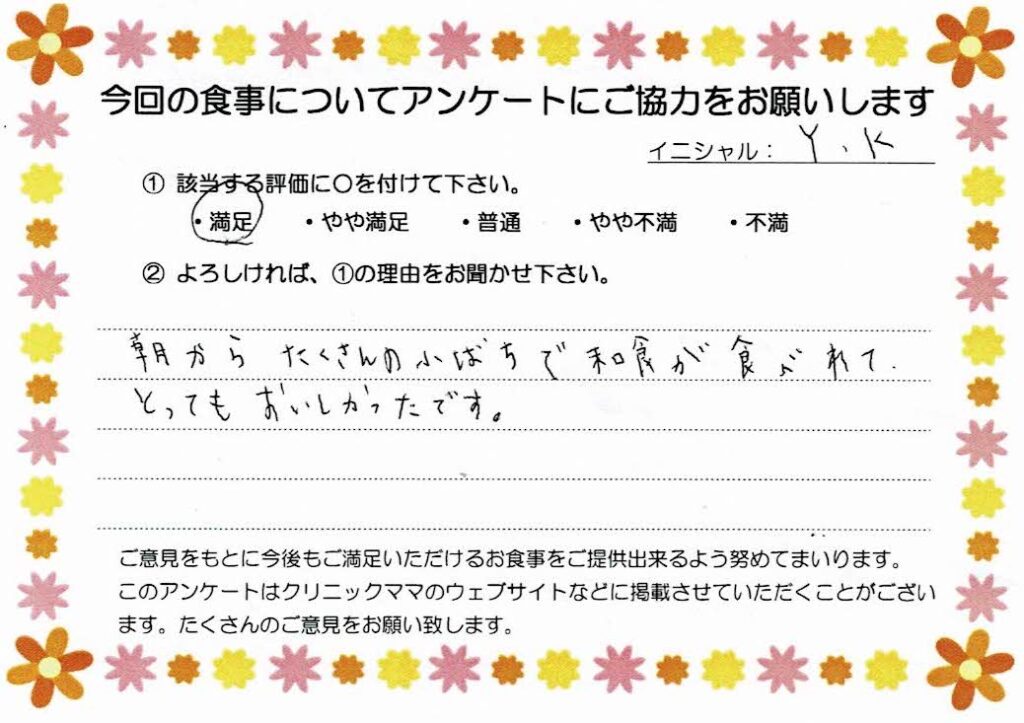 今回の食事についてアンケートにご協力をお願いします
イニシャル: Y.K
① 該当する評価に〇を付けて下さい。
・満足 ・やや満足 ・普通 ・やや不満 ・不満
② よろしければ、①の理由をお聞かせ下さい。
朝から たくさんの小ばちで 和食が 食べれて.
とっても おいしかったです。
ご意見をもとに今後もご満足いただけるお食事をご提供出来るよう努めてまいります。
このアンケートはクリニックママのウェブサイトなどに掲載させていただくことがござい
ます。たくさんのご意見をお願い致します。